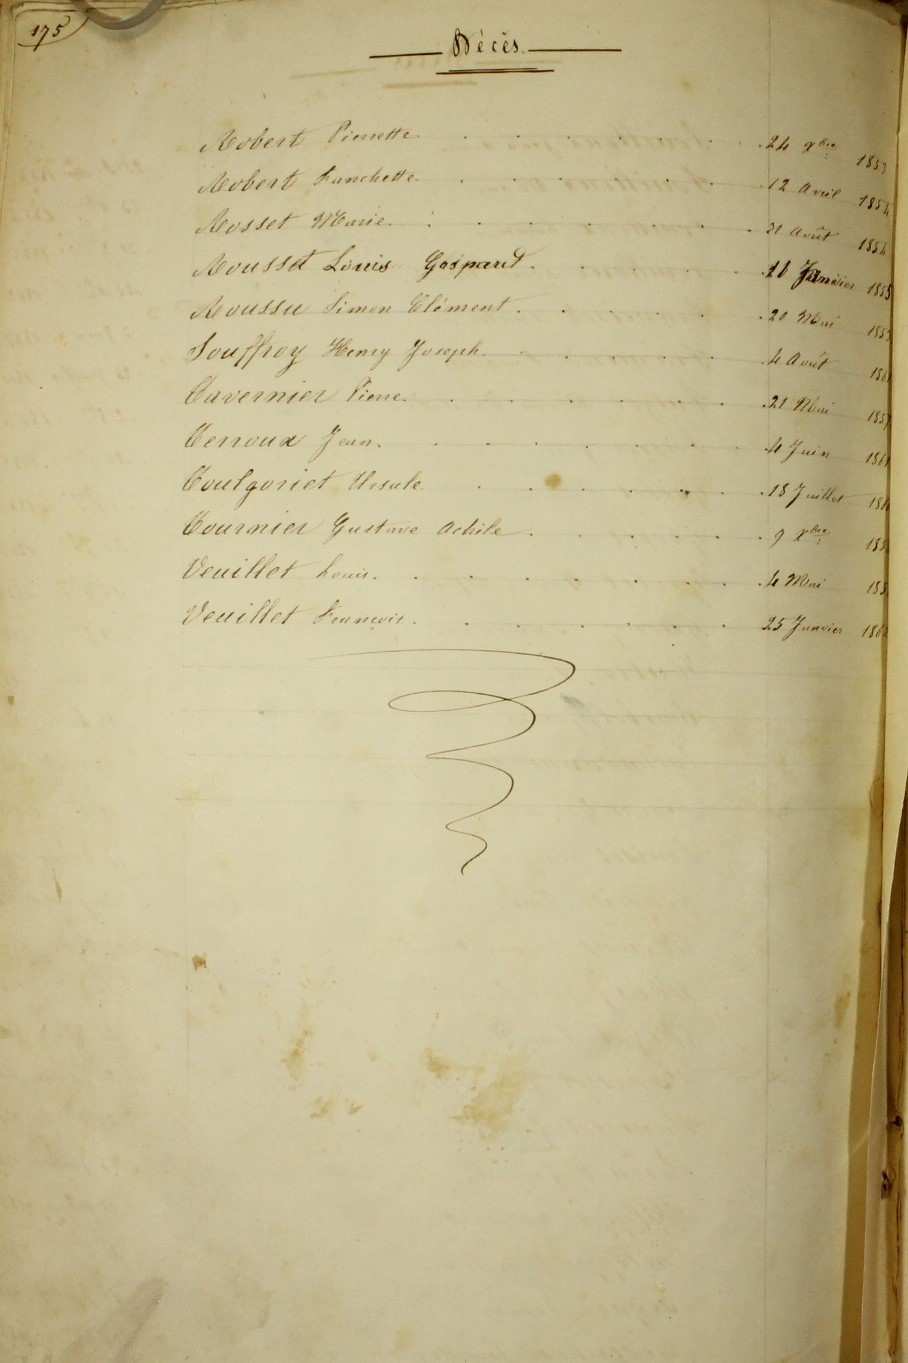 175
Décès
Robert Pierrette 24 9bre 1853
Robert Fanchette 12 Avril 1854
Rosset Marie 31 Août 1854
Rousset Louis Gaspard 11 Janvier 1855
Roussu Simon Clément 20 Mai 1853
Souffroy Henry Joseph 4 Août
Tavernier Pierre 21 Mai 1857
Terroux Jean 4 Juin
Toulgoriet Ursule 18 Juillet
Tournier Gustave Achile 9 Xbre
Veuillet Louis 4 Mai
Veuillet François 25 Janvier